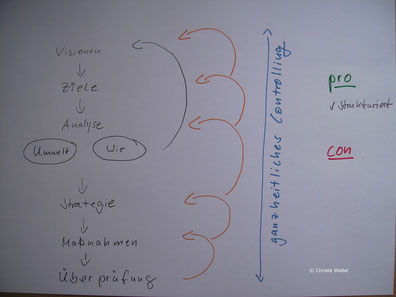 Visionen
Ziele
Analyse
Umwelt
Wir
Strategie
Maßnahmen
Überprüfung
ganzheitliches Controlling
pro
✓ strukturiert
con
© Christa Weßel